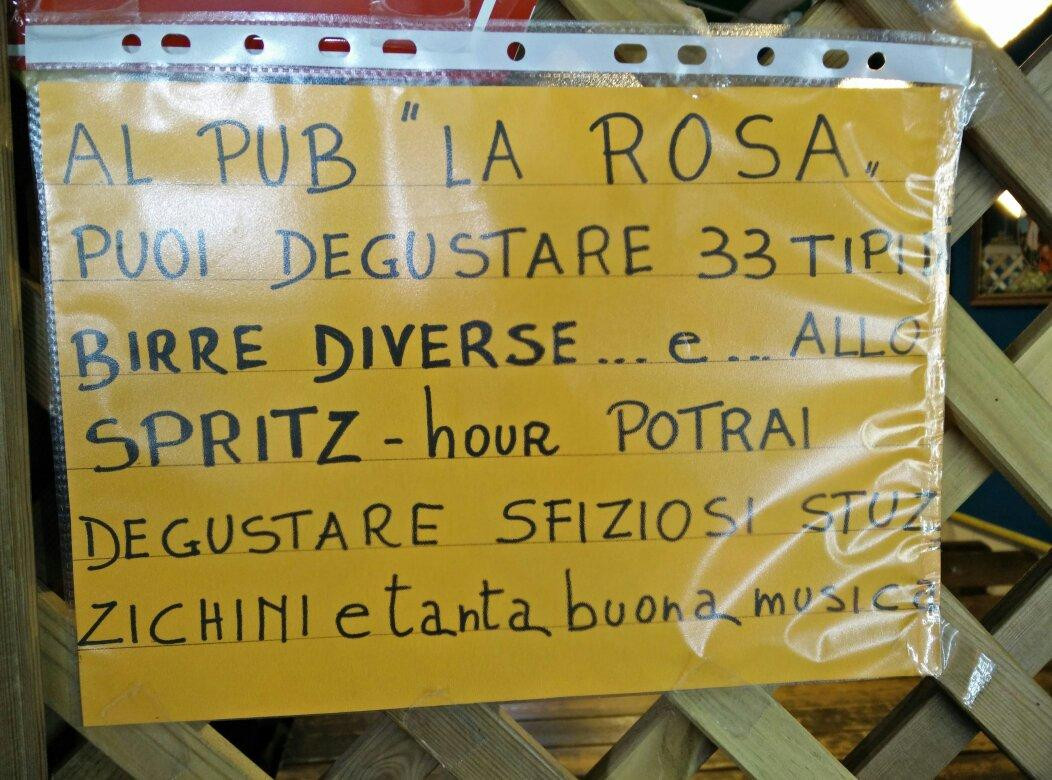 AL PUB "LA ROSA"
PUOI DEGUSTARE 33 TIPI DI
BIRRE DIVERSE... e... ALLO
SPRITZ-hour POTRAI
DEGUSTARE SFIZIOSI STUZ
ZICHINI e tanta buona musica